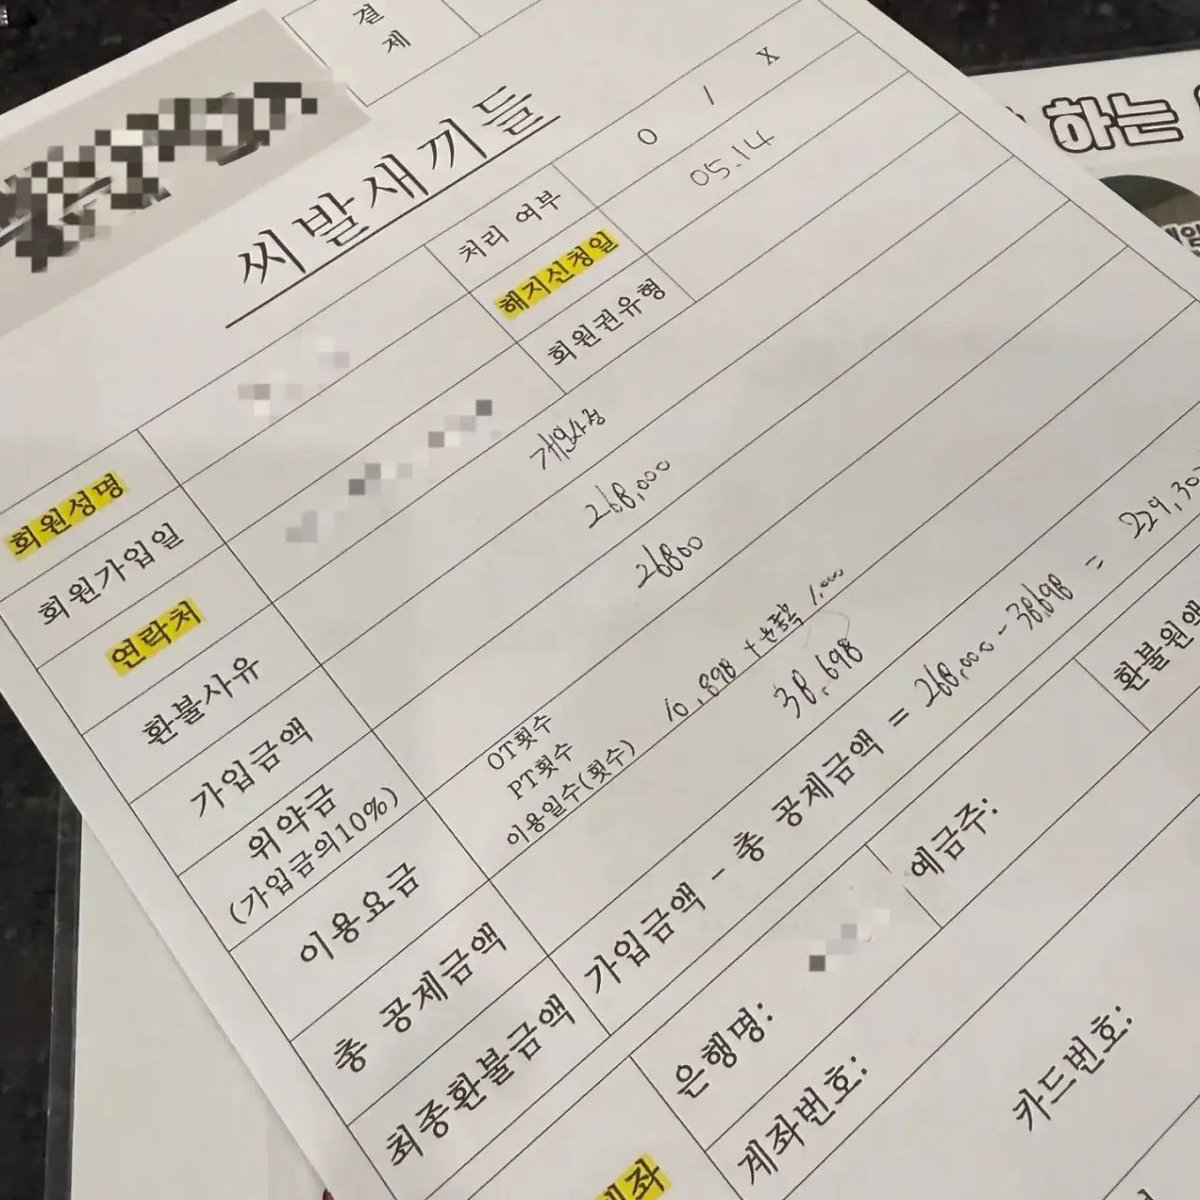 결제
씨발새끼들
처리 여부 O / X
해지신청일 05.14
회원권유형
회원성명
회원가입일
연락처
환불사유 개인사정
가입금액 268,000
위약금 26800
(가입금의10%)
이용요금
OT횟수
PT횟수
이용일수(횟수) 10,898 + 1,000
총 공제금액 38,698
최종환불금액 가입금액 - 총 공제금액 = 268,000 - 38,698 = 229,30
환불원액
은행명: 예금주:
계좌번호:
카드번호:
계좌
하는